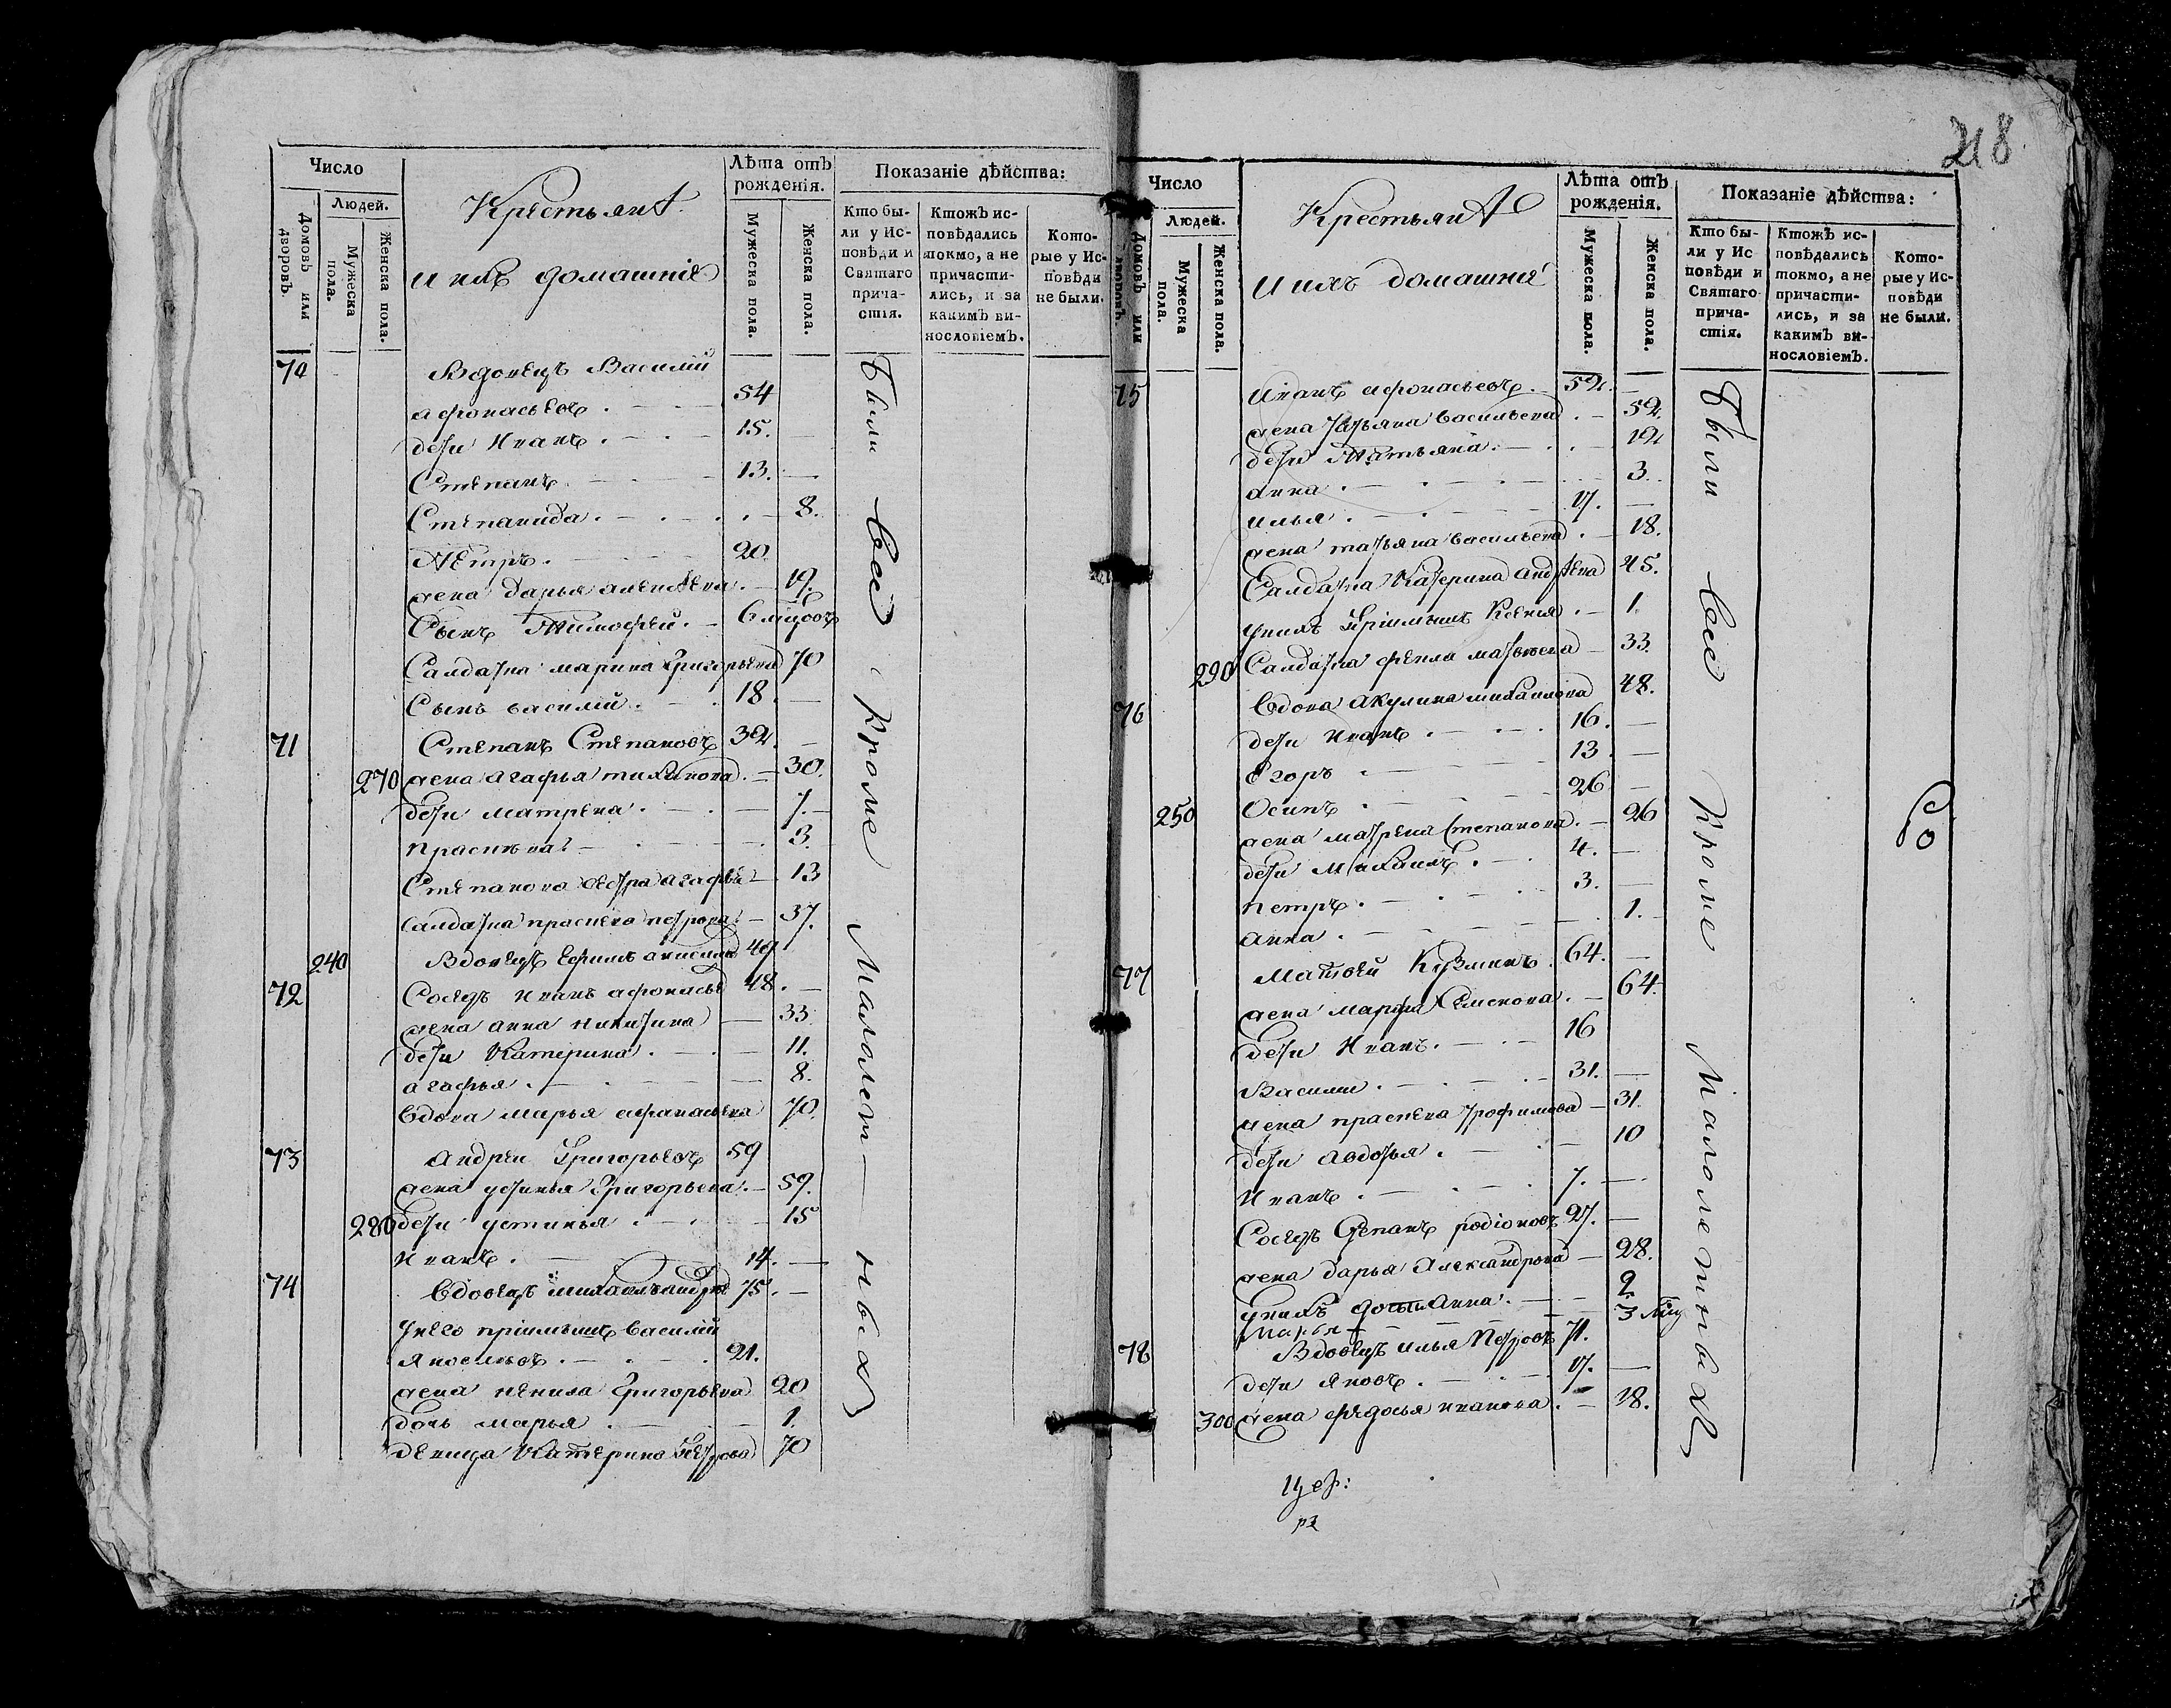 218
Число
Людей.
Домовъ или дворовъ.
Мужеска пола.
Женска пола.
Крестьяня
и ихъ домашнія
Лѣта отъ рожденія.
Мужеска пола.
Женска пола.
Показаніе дѣйства:
Кто бы-
ли у Ис-
повѣди и
Святаго
прича-
стія.
Ктожъ ис-
повѣдались
токмо, а не
причасти-
лись, и за
какимъ ви-
нословіемъ.
Кото-
рые у Ис-
повѣди
не были.
70 Вдовецъ Василій
афонасьевъ 54
дети Иванъ 15.
Степанъ 13.
Степанида 8.
Петръ 20
жена дарья алексѣева 19.
Сынъ Тимофей 6 мцовъ
Салдатка марина Григорьева 70
Сынъ василій 18.
71 Степанъ Степановъ 32.
270 жена агафья тихонова 30.
дети матрена 7.
прасковья 3.
Степанова сестра агафья 13
салдатка прасковья петрова 37.
240 Вдовецъ Ефимъ 49
72 Соседъ Иванъ афонасьевъ 48.
жена анна никитина 33.
дети Катерина 11.
агафья 8.
вдова марья афанасьева 70.
73 Андреи Григорьевъ 59
жена устинья Григорьева 59.
280 дети устинья 15
Иванъ 14.
74 вдовецъ михаилъ андрее 75.
у него пріимышъ василій
яковлевъ 21.
жена Григорьева 20
дочь марья 1.
девица Катерина Петрова 70
Были все кроме малолетныхъ
Число
Людей.
Домовъ или дворовъ.
Мужеска пола.
Женска пола.
Крестьяня
и ихъ домашнія
Лѣта отъ рожденія.
Мужеска пола.
Женска пола.
Показаніе дѣйства:
Кто бы-
ли у Ис
повѣди и
Святаго
прича-
стія.
Ктожъ ис-
повѣдались
токмо, а не
причасти-
лись, и за
какимъ ви-
нословіемъ.
Кото-
рые у Ис-
повѣди
не были.
75 Иванъ афонасьевъ 52.
жена татьяна васильева 52.
дети Татьяна 12
анна 3.
илья 17.
жена татьяна васильева 18.
Салдатка Катерина андрѣева 45.
у нихъ пріимышъ Ксения 1.
290 Салдатка фекла матвеева 33.
76 вдова акулина михаилова 48.
дети Иванъ 16.
Егоръ 13.
Осипъ 26
250 жена матрена степанова 26
дети Михаилъ 4.
петръ 3.
анна 1.
77 Матвей Кузминъ 64.
жена марфа Семенова 64.
дети Иванъ 16
Василии 31.
жена прасковья трофимова 31.
дети авдотья 10
Иванъ 7.
Соседъ Степанъ родіоновъ 27.
жена дарья Александрова 28.
у нихъ дочь Анна 2.
Марья 3 мц
78 Вдовецъ илья Петровъ 71.
дети яковъ 17.
300 жена федосья иванова 18.
Были все кроме малолетныхъ